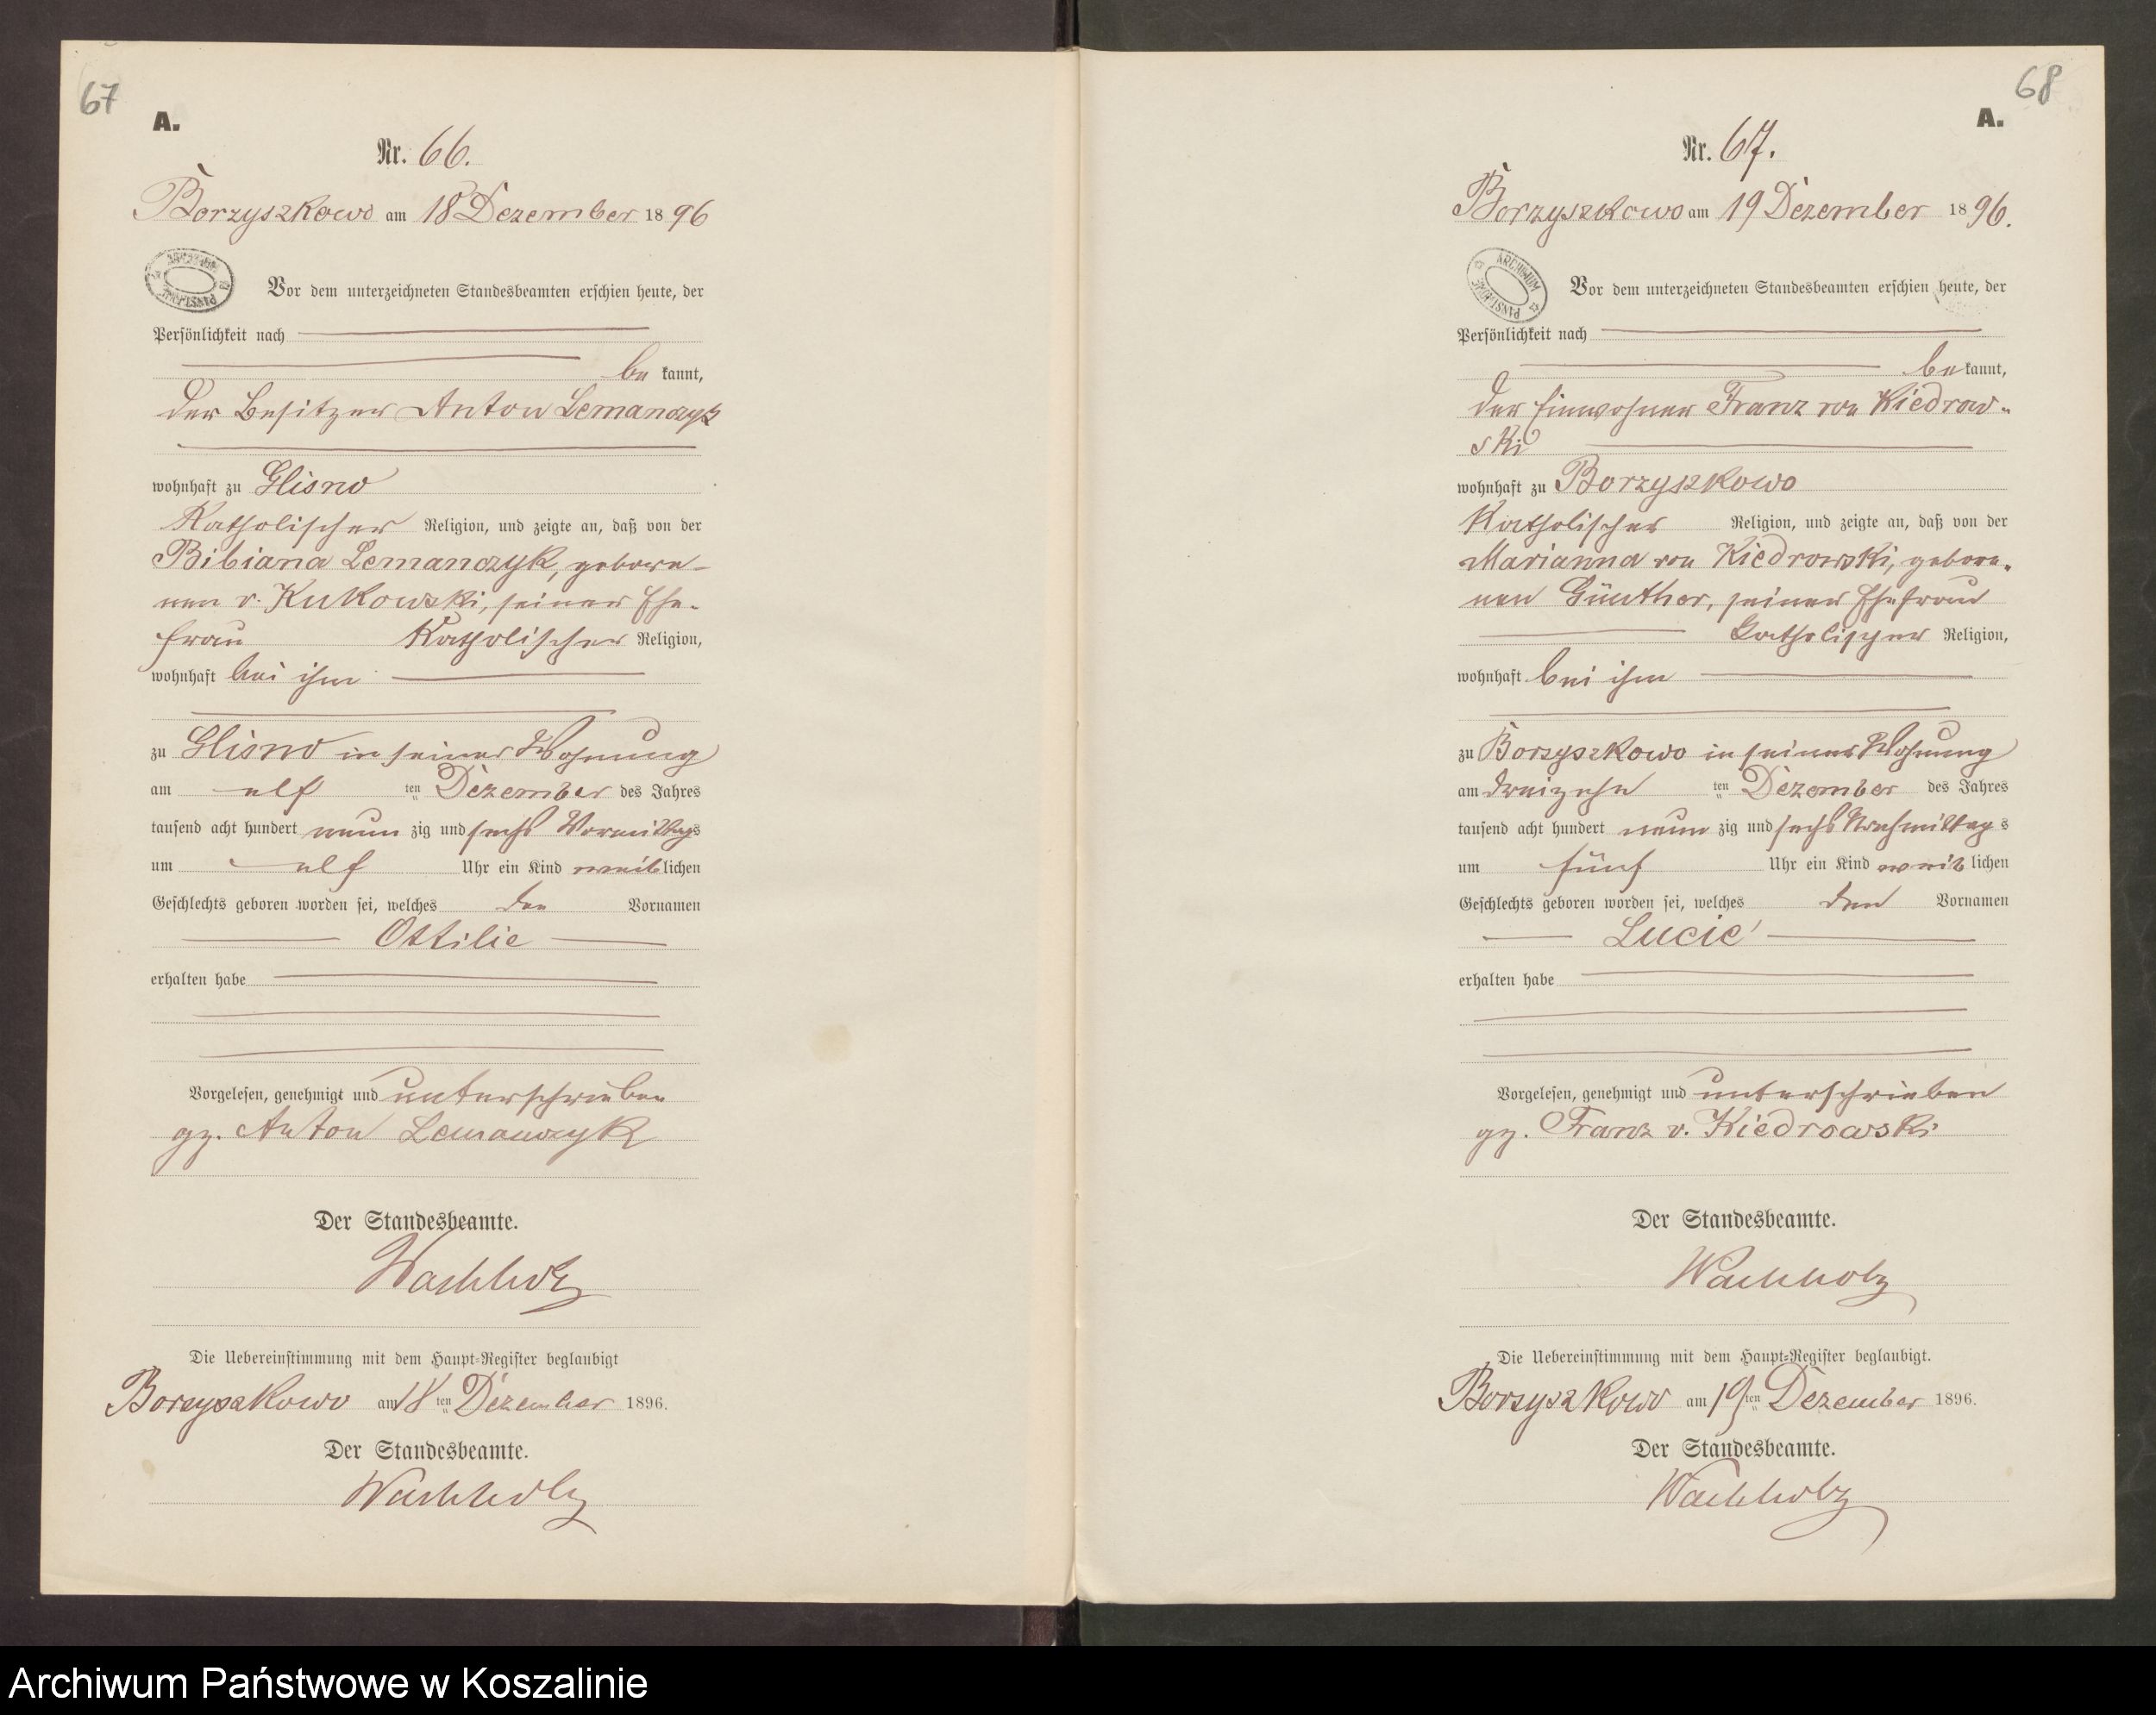 67
A.
Nr. 66.
Borzyszkowo am 18 Dezember 1896
ARCHIWUM PAŃSTWOWE
Vor dem unterzeichneten Standesbeamten erschien heute, der
Persönlichkeit nach
be kannt,
der Besitzer Anton Lemanczyk
wohnhaft zu Glisno
Katholischer Religion, und zeigte an, daß von der
Bibiana Lemanczyk, gebore-
nen v. Kukowski, seiner Ehe-
frau Katholischer Religion,
wohnhaft bei ihm
zu Glisno in seiner Wohnung
am elf ten Dezember des Jahres
tausend acht hundert neun zig und sechs Vormittags
um elf Uhr ein Kind weiblichen
Geschlechts geboren worden sei, welches den Vornamen
Ottilie
erhalten habe
Vorgelesen, genehmigt und unterschrieben
gz. Anton Lemanczyk
Der Standesbeamte.
Wachholz
Die Uebereinstimmung mit dem Haupt-Register beglaubigt
Borzyszkowo am 18 ten Dezember 1896.
Der Standesbeamte.
Wachholz
68
A.
Nr. 67.
Borzyszkowo am 19 Dezember 1896.
ARCHIWUM PAŃSTWOWE
Vor dem unterzeichneten Standesbeamten erschien heute, der
Persönlichkeit nach
be kannt,
der Einwohner Franz von Kiedrow-
ski
wohnhaft zu Borzyszkowo
Katholischer Religion, und zeigte an, daß von der
Marianna von Kiedrowski, gebore-
nen Günther, seiner Ehefrau
Katholischer Religion,
wohnhaft bei ihm
zu Borzyszkowo in seiner Wohnung
am dreizehn ten Dezember des Jahres
tausend acht hundert neun zig und sechs Nachmittags
um fünf Uhr ein Kind weiblichen
Geschlechts geboren worden sei, welches den Vornamen
Lucie
erhalten habe
Vorgelesen, genehmigt und unterschrieben
gz. Franz v. Kiedrowski
Der Standesbeamte.
Wachholz
Die Uebereinstimmung mit dem Haupt-Register beglaubigt.
Borzyszkowo am 19 ten Dezember 1896.
Der Standesbeamte.
Wachholz
Archiwum Państwowe w Koszalinie